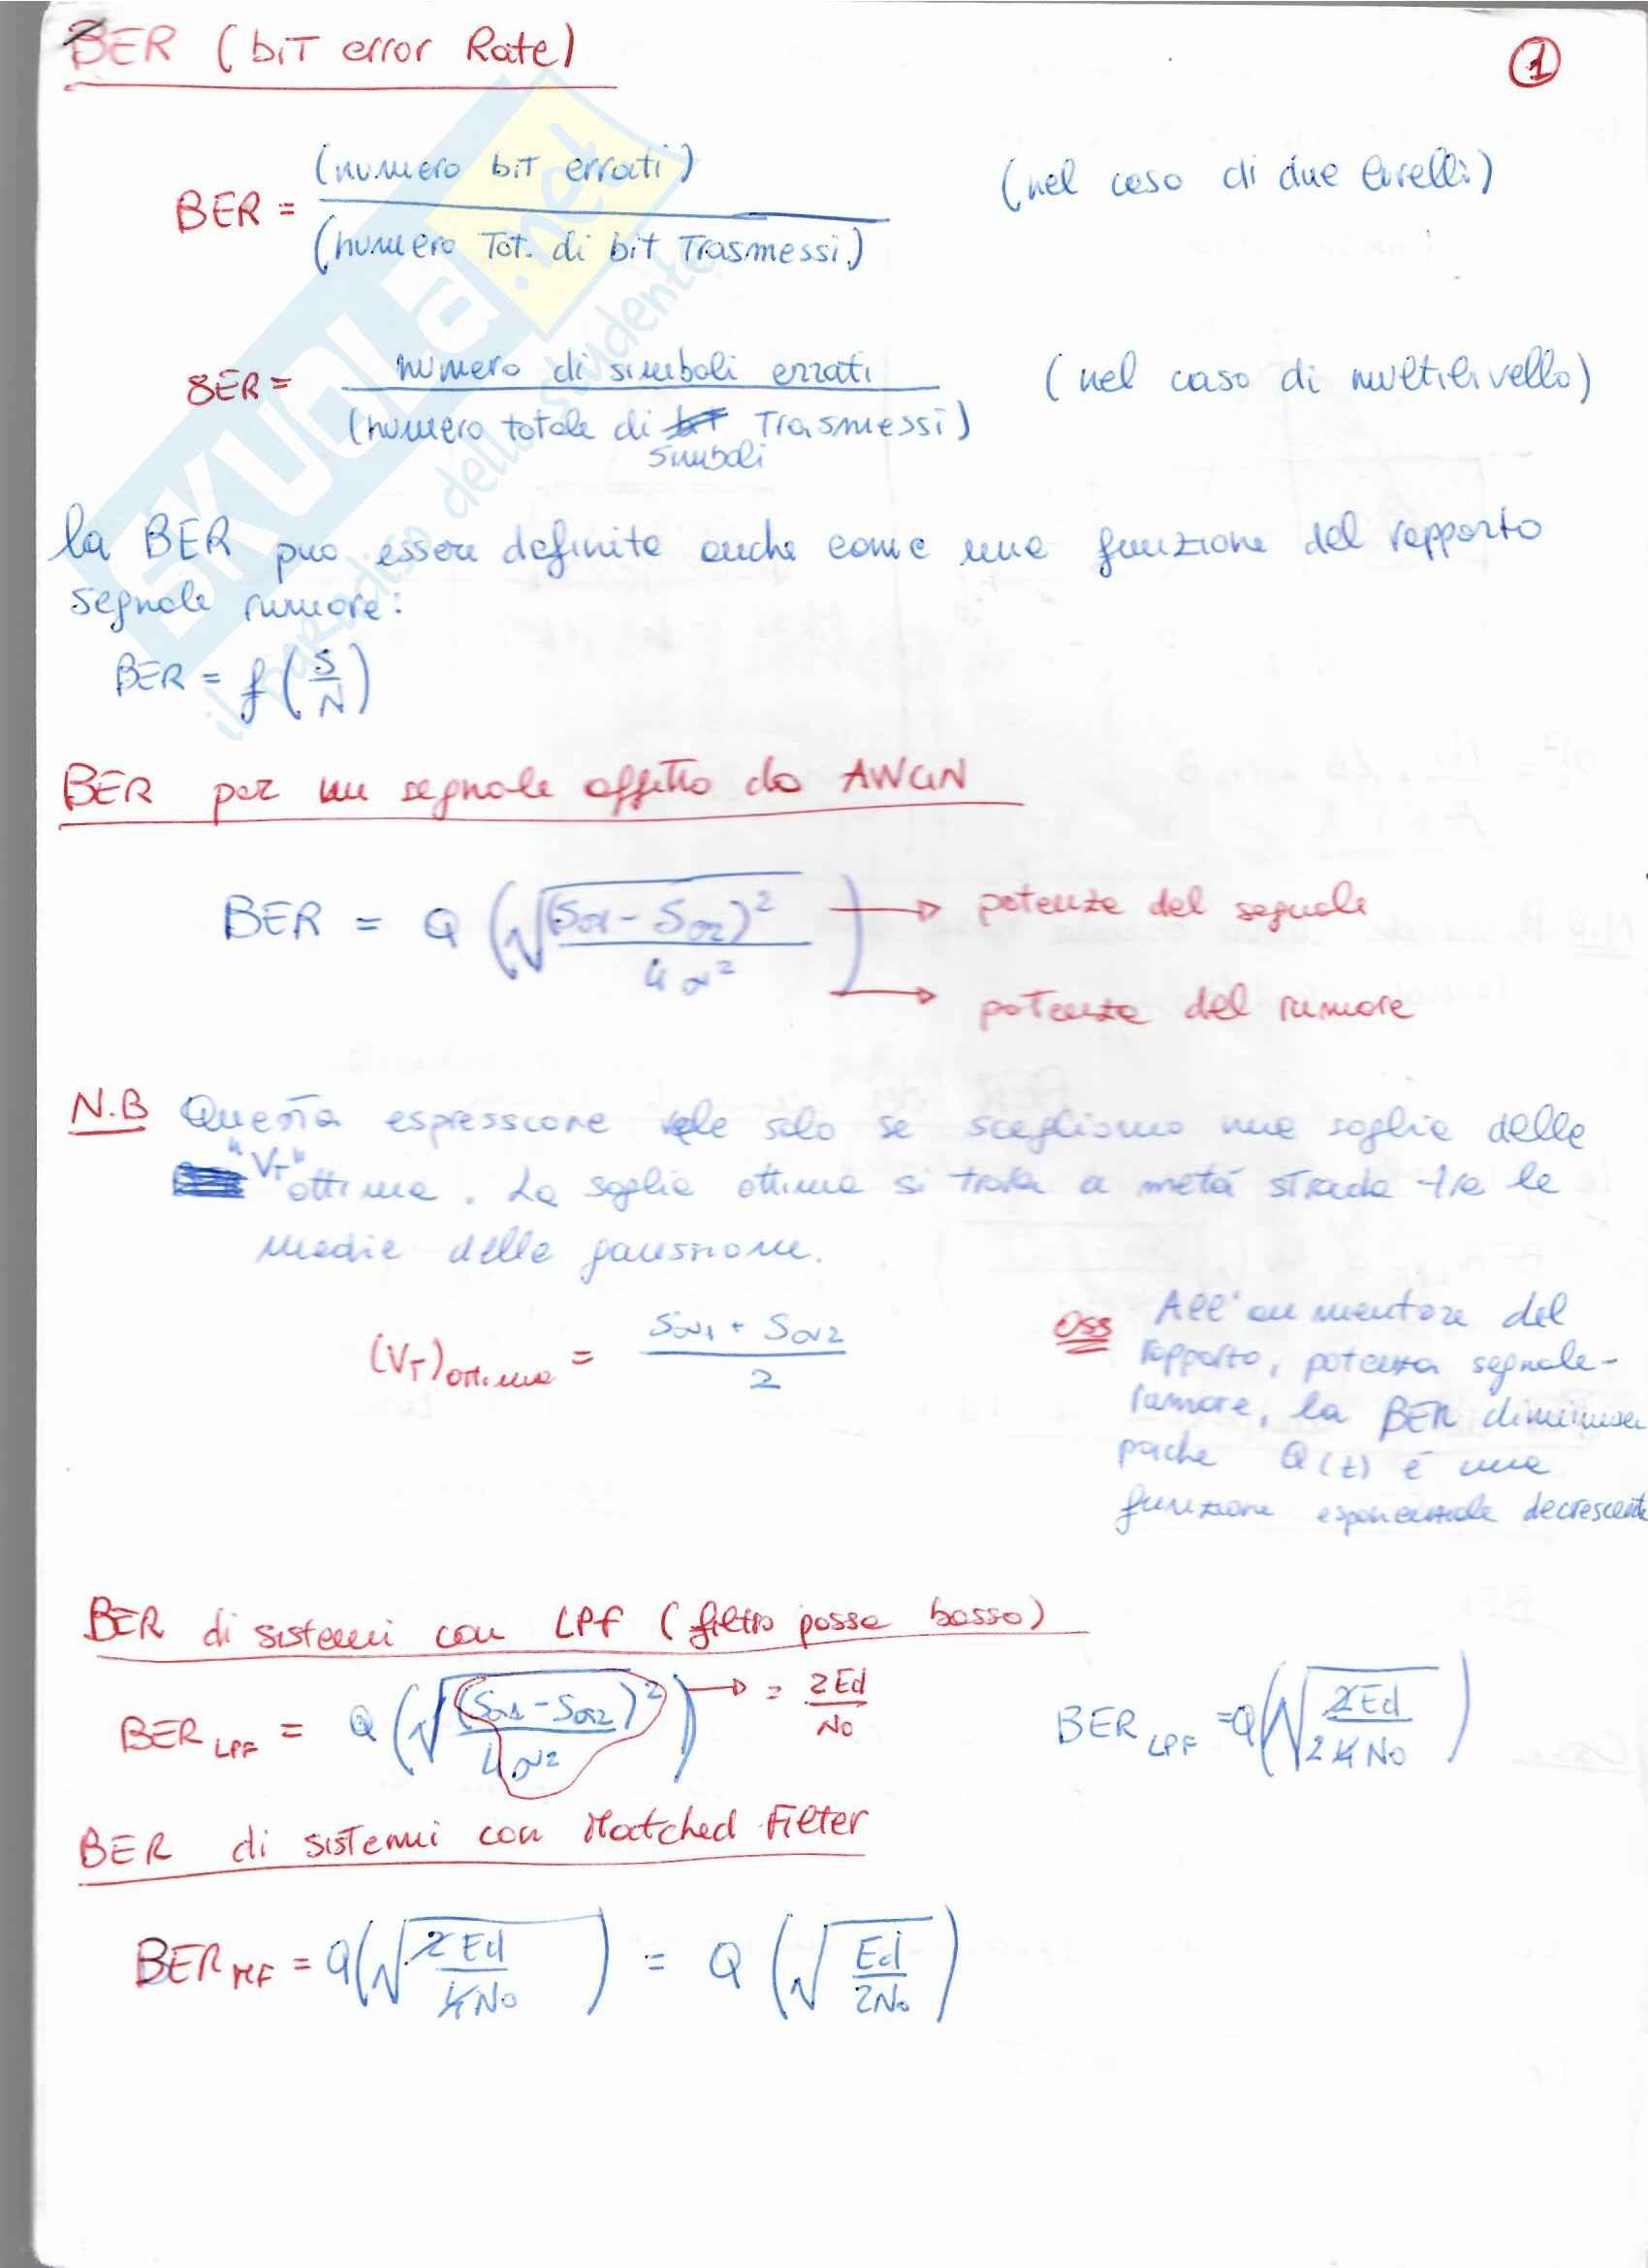 BER (biT error Rate)
1
BER = (numero biT errati) / (numero Tot. di bit Trasmessi) (nel caso di due livelli)
SER = numero di simboli errati / (numero totale di simboli Trasmessi) (nel caso di multilivello)
SKUOLA.net
il paradiso dello studente
la BER può essere definita anche come una funzione del rapporto
segnale rumore:
BER = f(S/N)
BER per un segnale affetto da AWGN
BER = Q(√((So1 - So2)² / 4σ²)) → potenza del segnale
→ potenza del rumore
N.B Questa espressione vale solo se scegliamo una soglia delle
"VT" ottima. La soglia ottima si trova a metà strada tra le
medie delle gaussiane.
(VT)ottima = (So1 + So2) / 2
Oss All'aumentare del
rapporto, potenza segnale-
rumore, la BER diminuisce
poiché Q(z) è una
funzione esponenziale decrescente
BER di sistemi con LPF (filtro passa basso)
BER LPF = Q(√((So1 - So2)² / 4σ²)) → = 2Ed / No
BER LPF = Q(√(2Ed / 2 4 No))
BER di sistemi con Matched Filter
BER MF = Q(√(2Ed / 4No)) = Q(√(Ed / 2No))